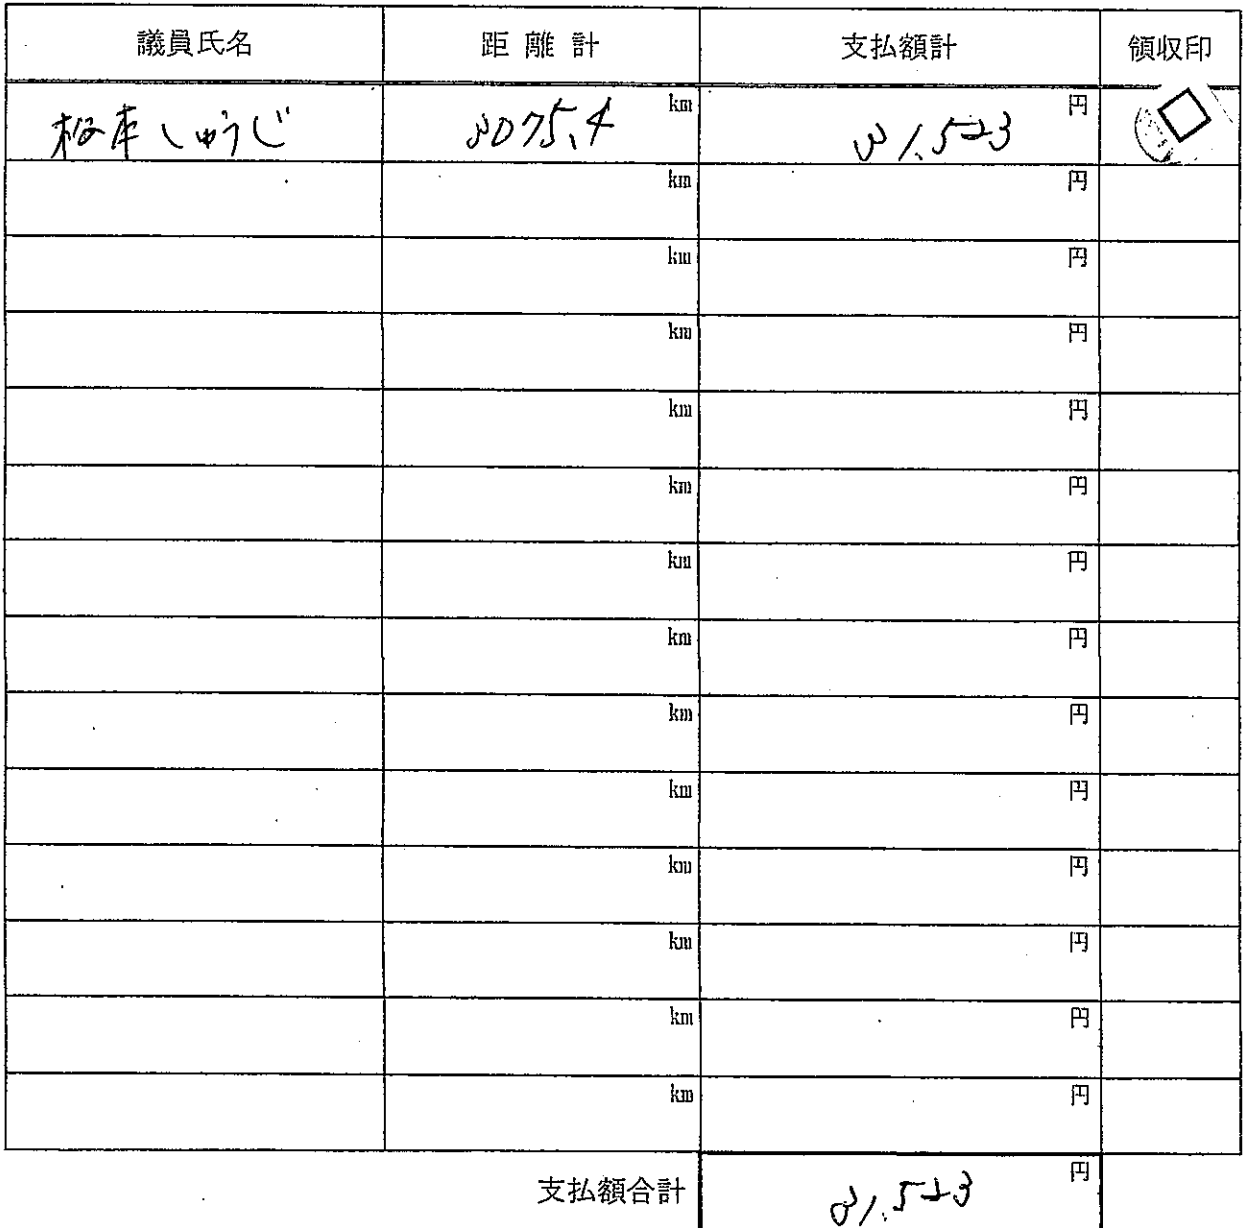 議員氏名 距離計 支払額計 領収印
松本しゅうじ 3075.4 km 31,523 円
km 円
km 円
km 円
km 円
km 円
km 円
km 円
km 円
km 円
km 円
km 円
km 円
km 円
支払額合計 31,523 円